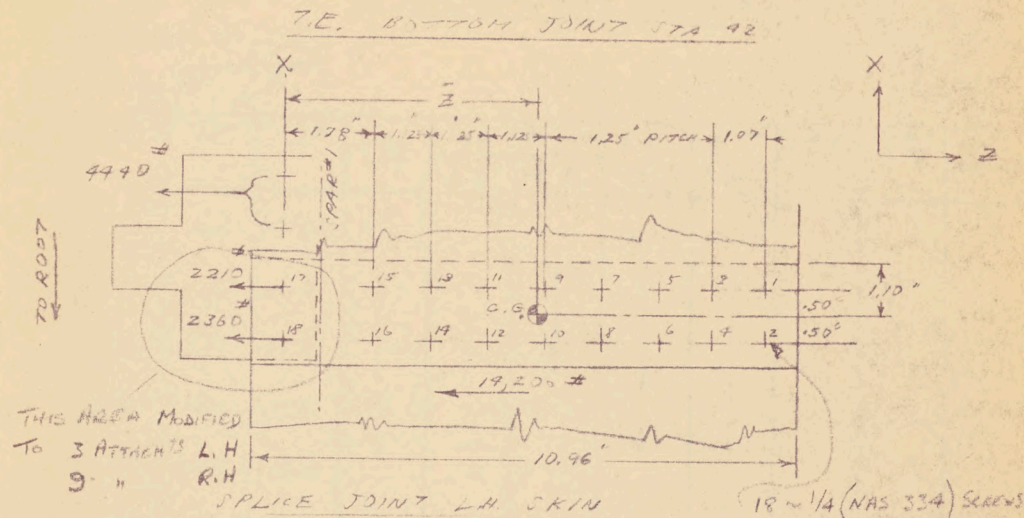 T.E. BOTTOM JOINT STA 92
X
X
Z̄
1.78" 1.25" 1.25" 1.12 1.25" PITCH 1.07"
Z
4440 #
SPAR #1
TO ROOT
#
2210 17 15 13 11 9 7 5 3 1
1.10"
#
C.G. .50"
2360 18 16 14 12 10 8 6 4 2 .50"
14,200 #
THIS AREA MODIFIED
TO 3 ATTACHTS L.H
9 " R.H
10.96"
SPLICE JOINT L.H. SKIN
18 ~ 1/4 (NAS 334) SCREWS